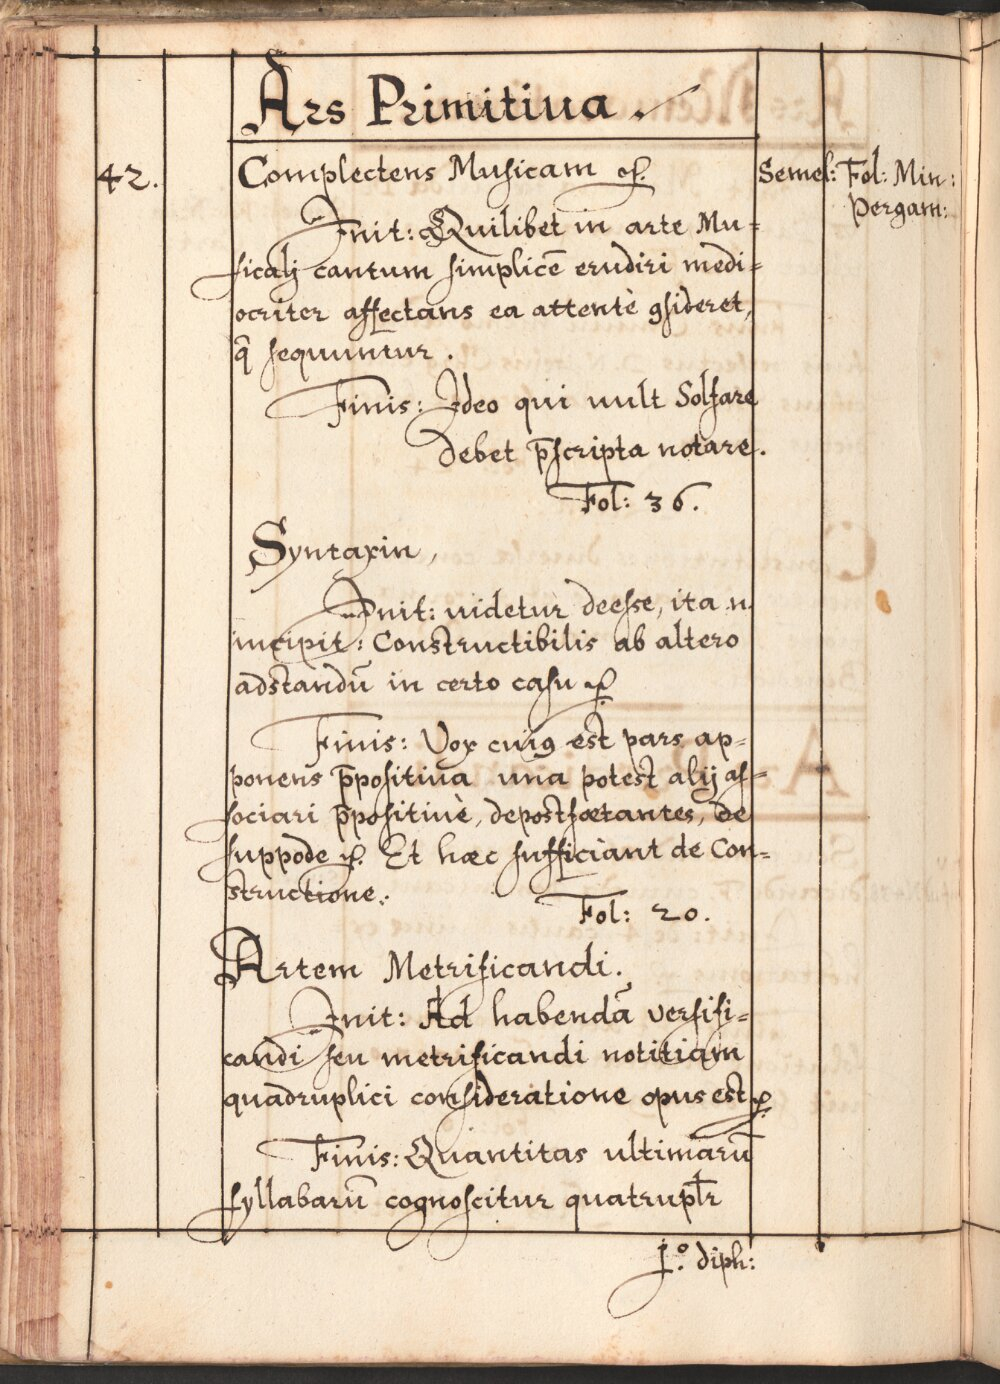 Ars Primitiua.
42.
Complectens Musicam &.
Semel: Fol: Min:
Pergam:
Init: Quilibet in arte Mu=
sicalj cantum simplicē erudiri medi=
ocriter affectans ea attentè 9sideret,
q̄ sequuntur.
Finis: Ideo qui uult Solfare
debet p̄scripta notare.
Fol: 36.
Syntaxin,
Init: uidetur deesse, ita n.
incipit: Constructibilis ab altero
adstandū in certo casu &
Finis: Vox cui9 est pars ap=
ponens p̄positiua una potest alij as=
sociari p̄positiuè, de
suppode &. Et hæc sufficiant de Con=
structione.
Fol: 20.
Artem Metrificandi.
Init: Ad habendā versifi=
candi seu metrificandi notitiam
quadruplici consideratione opus est &
Finis: Quantitas ultimarū
syllabarū cognoscitur quatruplr
1.º diph: